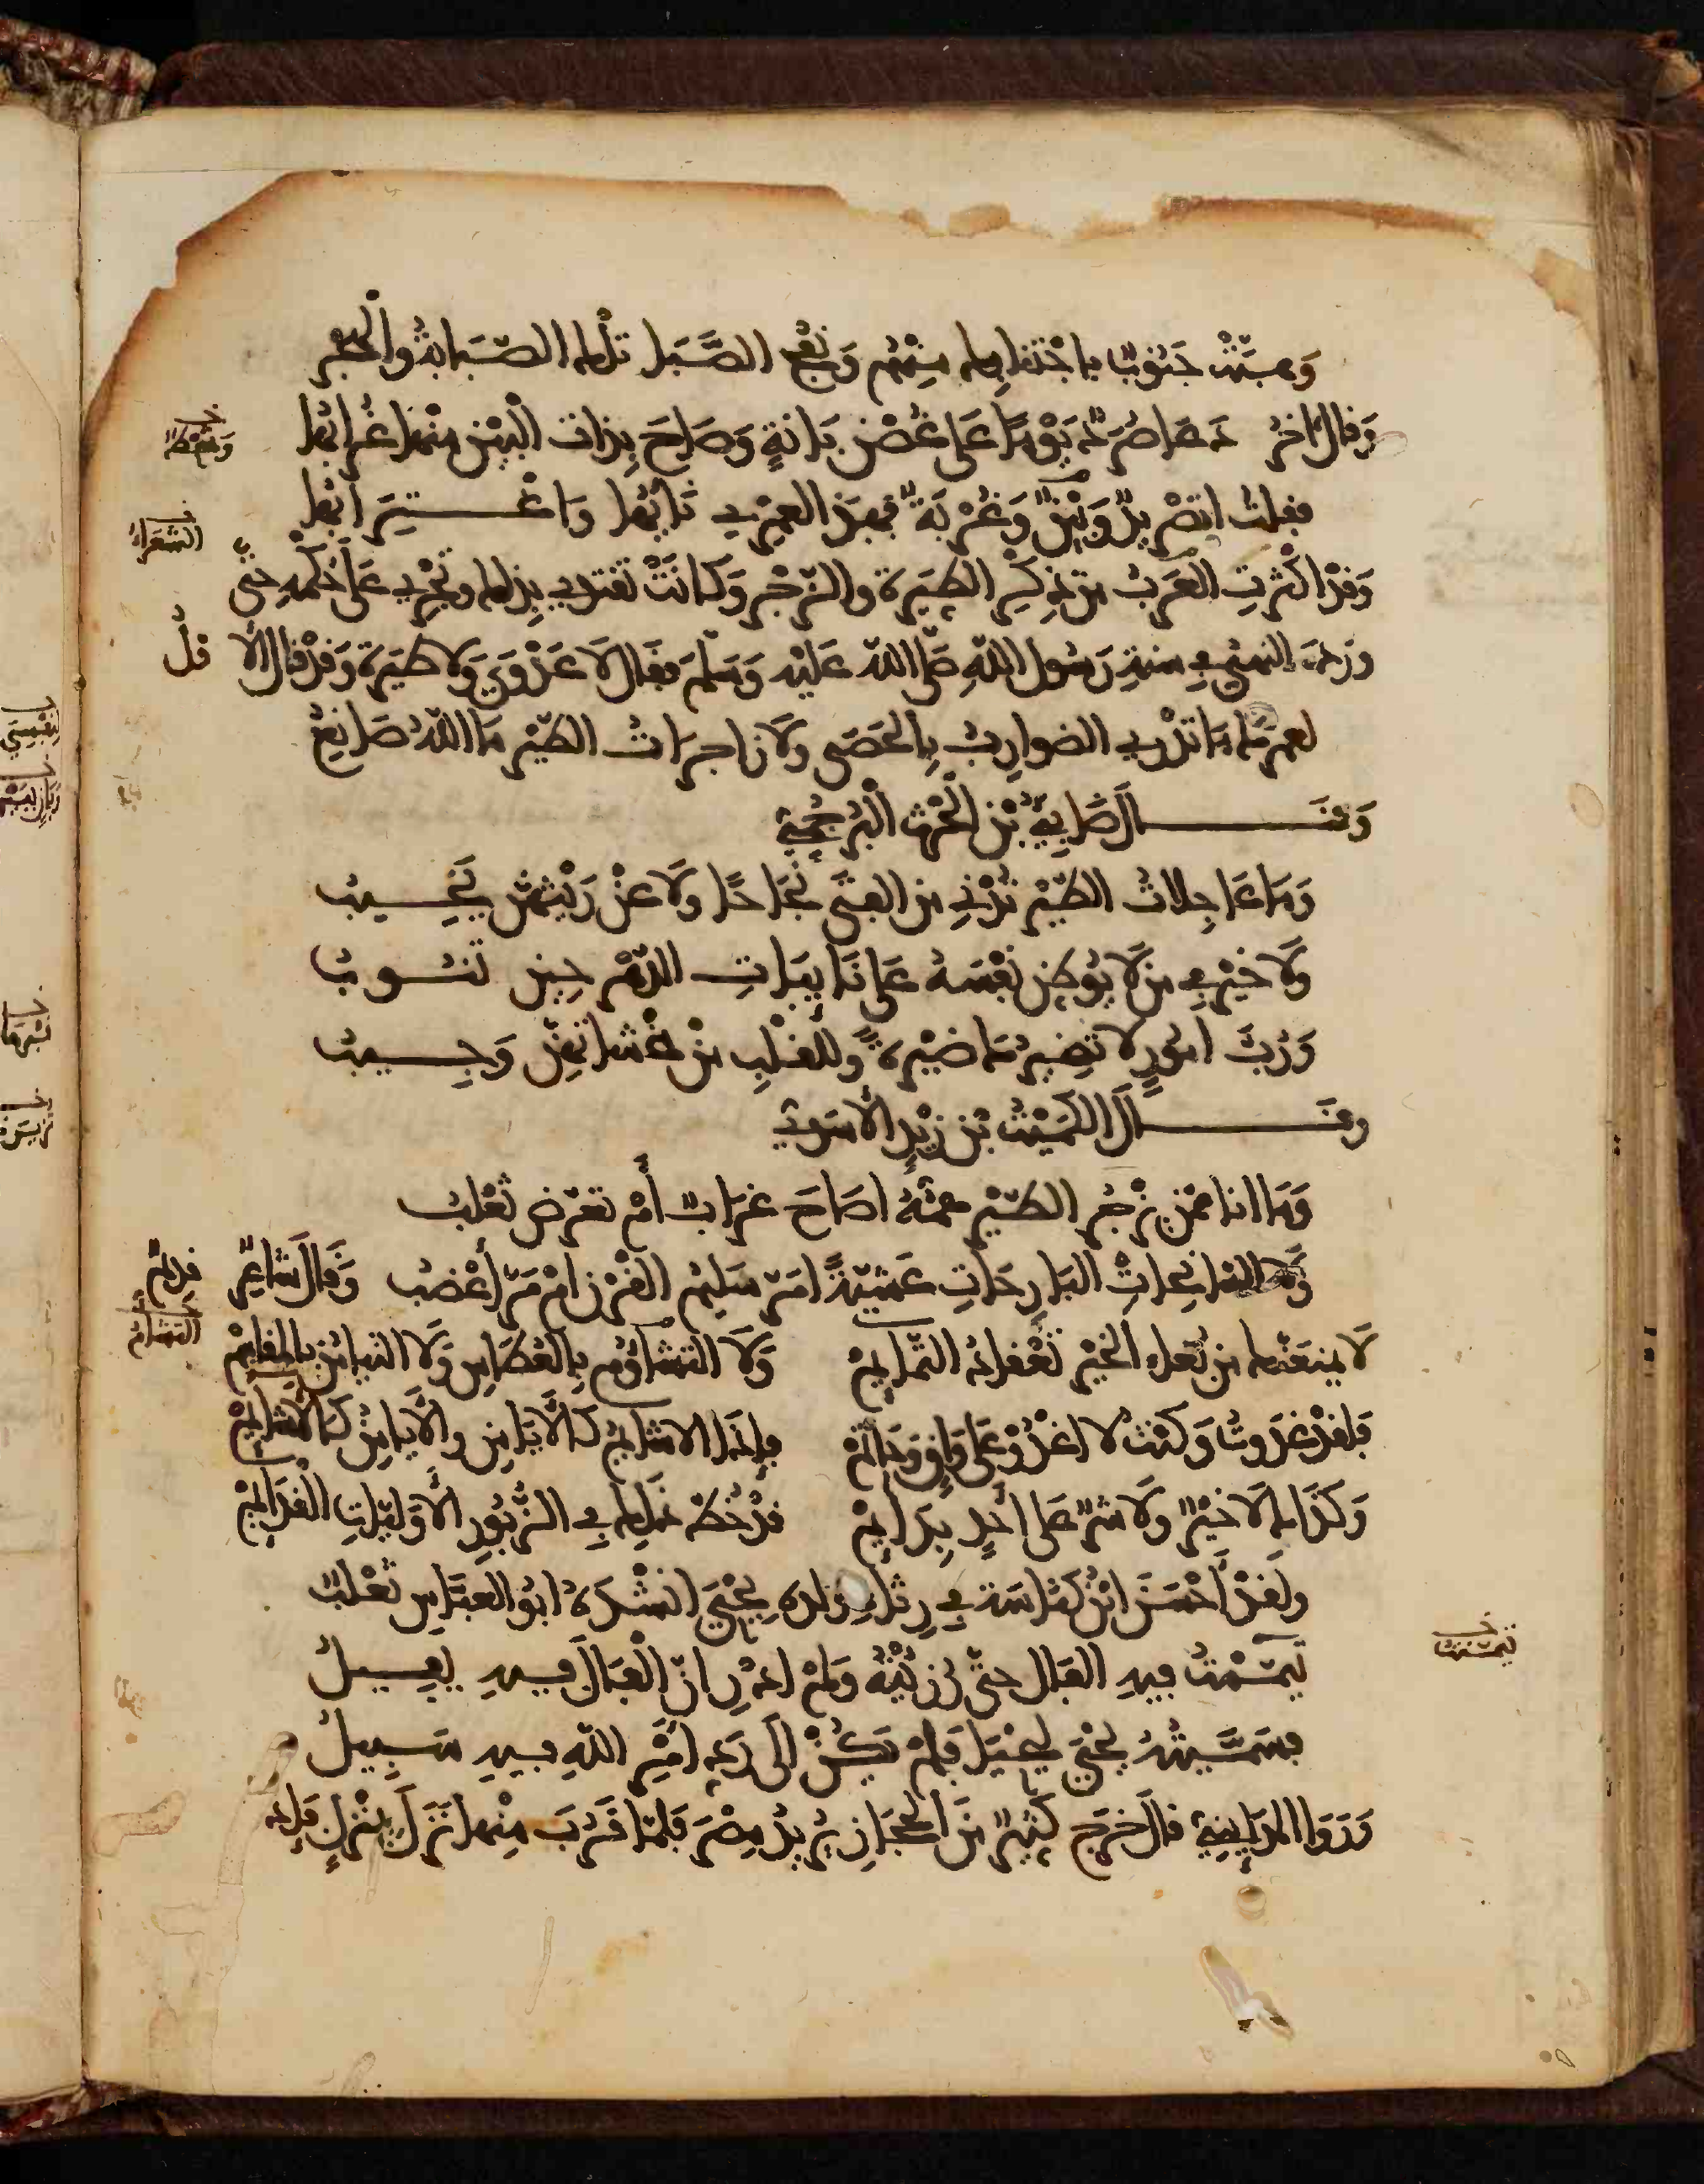 وَهبَّتْ جَنُوبٌ باجْتنابِها مِنْهُم وَنفْحُ الصَّبَا تلْك الصّبَابةُ والْهجْر
وَقال اخرُ دَعَا صُرَدٌ يَوْمًا عَلى غُصْنِ بَانةٍ وَصَاحَ بِذات الْبَيْن منْها غُرابُها
فقلت اتصْريدٌ وَبَيْنٌ وَغُرْبَةٌ فهذ العمْرِي نَايُها وَاغْـــتِرَابُها
وَقدْ اكْثرتِ العَرَبُ من ذِكْرِ الطِيَرة والزّجْر وَكانَتْ تقتدِي بِذلك وتَجْرِي عَلى حُكْمِه حتّى
وردَ النهيُ في سنةِ رَسُول اللّهِ صَلّى اللّه عَليْه وَسَلّم فقَال لَا عَدْوَى وَلا طيَرة وَقدْ قال الاوّلُ
لعمرُك مَا تدْرِي الضوارِبُ بِالحَصَى ولَا زاجرَاتُ الطّيْر مَا اللّهُ صَانِعُ
وَقَــــالَ ضَابِئُ بْن الْحٰرث الْبُرْجُمِيّ
وَمَا عَاجِلاتُ الطّيْر تُدْنِي من الفتَى نَجَاحًا ولَا عنْ رَيْثهنّ يَخِـــيب
ولَا خيْر في من لَا يُوطِن نفْسَهُ عَلى نَايبَاتِ الدّهْر حِين تنـــوبُ
وَرُبّ امُورٍ لا تضِيرُكَ ضيْرةً وللقلْبِ منْ مخْشاتهنّ وَجِـــيبُ
وقـــــالَ الكُمَيْت بْن زيْدٍ الأسَدي
وَمَا انا ممّن يزْجُر الطّيْر همّهُ اصَاحَ غرَابٌ أمْ تعرّض ثعْلب
وَلا السانحاتُ البَارِحَاتِ عَشيّةً امَرّ سَليمُ القرْن امْ مَرّ أعْضبُ وَقالَ شاعِرٌ قدِيمٌ
لَا يمنعَنّك من بُغاءِ الخيْر تعْقادُ التّمايِمْ وَلَا التشاؤُم بِالعُطاسِ وَلَا التيامُن بالمقاسِمْ
فَلقدْ غدَوتُ وَكنْت لا اغْدُو عَلى وَاقٍ وَحَاتمْ فإذَا الاشايمُ كَالايَامِنِ والايامِنُ كالأشايِمْ
وَكذَاكَ لا خيْرٌ ولَا شرّ على أحَدٍ بِدَايمْ قدْ خُطّ ذلِك في الزّبُورِ الأوّليّاتِ القدَايمْ
ولقدْ أحْسَنَ ابْنُ كناسَة في رِثاءِ ولده يحْيَى انشدَهُ ابُو العبّاس ثعْلبٌ
تيمّمْتُ فيهِ الفال حتّى رُزِئتُهُ وَلمْ ادْرِ انّ الْفَالَ فيهِ يفِيــلُ
فسَمّيْتُهُ يحْيَى ليحْيَا فلمْ يكُنْ إلى رَدِّ امْرِ اللّهِ فيهِ سَبِيــلُ
وَرَوَى المدَاينِيّ قالَ خرَجَ كثيّرٌ منَ الحجَازِ يُرِيدُ مِصْرَ فلمّا قرُبَ منْها نزَلَ بمنْزلٍ فإذ
الشعَرَاءُ
التشاؤُم
تيمّنتُ